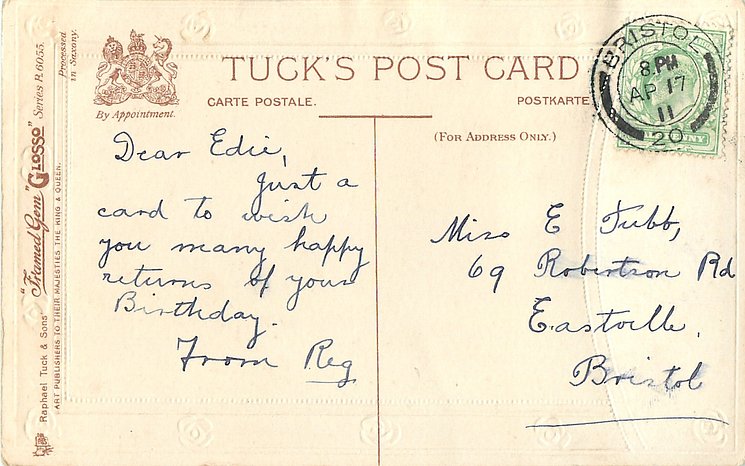 "Framed Gem "Glosso" Series R. 6055.
Processed in Saxony.
Raphael Tuck & Sons'
ART PUBLISHERS TO THEIR MAJESTIES THE KING & QUEEN.
By Appointment.
TUCK'S POST CARD
CARTE POSTALE.
POSTKARTE
(FOR ADDRESS ONLY.)
BRISTOL
8. PM
AP 17
11
20
Dear Edie,
Just a
card to wish
you many happy
returns of your
Birthday.
From Reg
Miss E Tubb,
69 Robertson Rd
Eastville,
Bristol